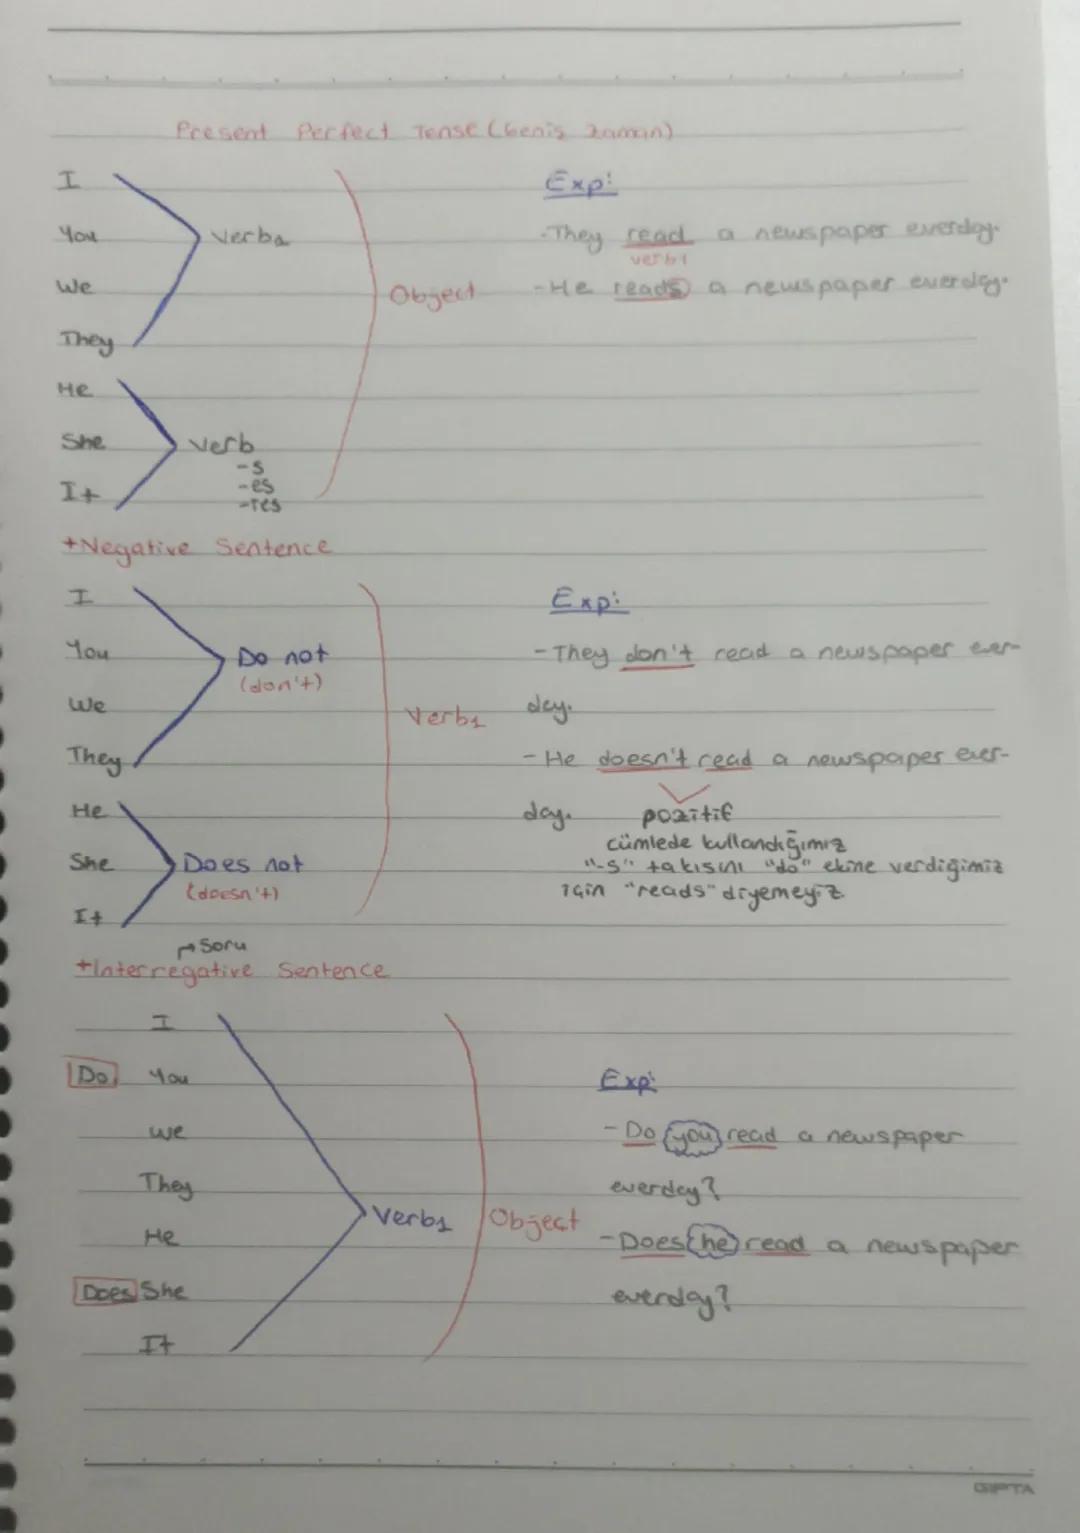 Present Perfect Tense (Geniş zaman)
I
You
We
They
Verb1
He
She
It
Verb
-s
-es
-ıes
Object
Exp:
-They read a newspaper everday.
verb1
-He reads a newspaper everday.
+Negative Sentence
I
You
We
They
Do not
(don't)
He
She
It
Does not
(doesn't)
Verb1
Exp:
-They don't read a newspaper ever-
day.
-He doesn't read a newspaper ever-
day.
pozitif
cümlede kullandığımız
"-s" takısını "do" ekine verdiğimiz
için "reads" diyemeyiz.
→Soru
+Interregative Sentence
Do
Does
I
You
We
They
He
She
It
Verb1
Object
Exp:
-Do you read a newspaper
everday?
-Does he read a newspaper
everday?
GIPTA